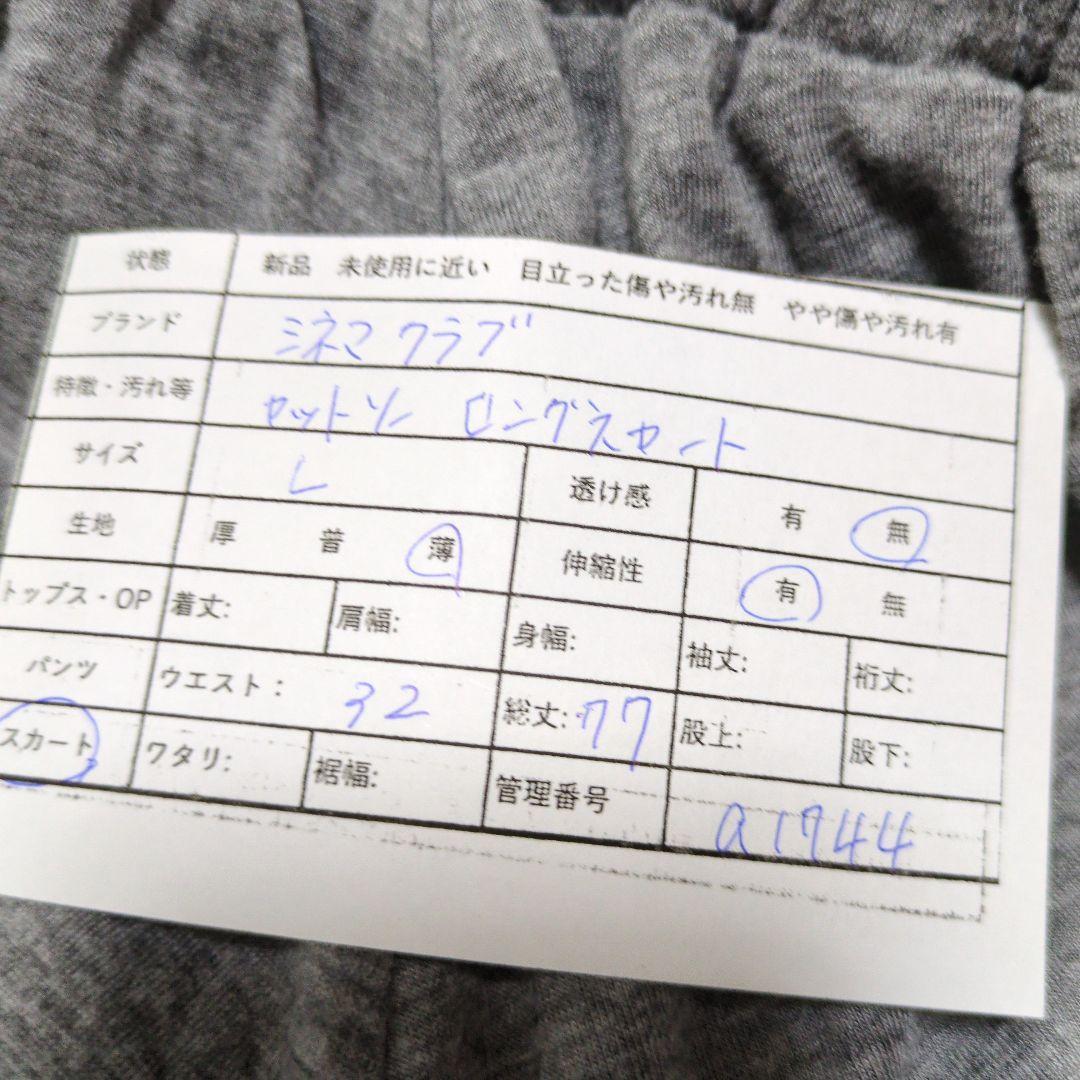 状態 新品 未使用に近い 目立った傷や汚れ無 やや傷や汚れ有
ブランド ミネマクラブ
特徴・汚れ等 カットソー ロングスカート
サイズ L 透け感 有 無
生地 厚 普 薄 伸縮性 有 無
トップス・OP 着丈: 肩幅: 身幅: 袖丈: 裄丈:
パンツ ウエスト: 32 総丈: 77 股上: 股下:
スカート ワタリ: 裾幅: 管理番号 a1744